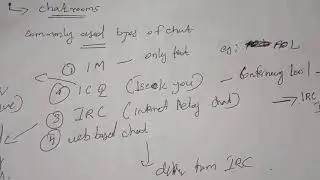 ↳ chatrooms
commonly used types of chat
① IM — only text eg: AOL
② ICQ (I seek you) — Conferencing tool
③ IRC (internet Relay chat) → IRC
④ web based chat
↓
differ from IRC.